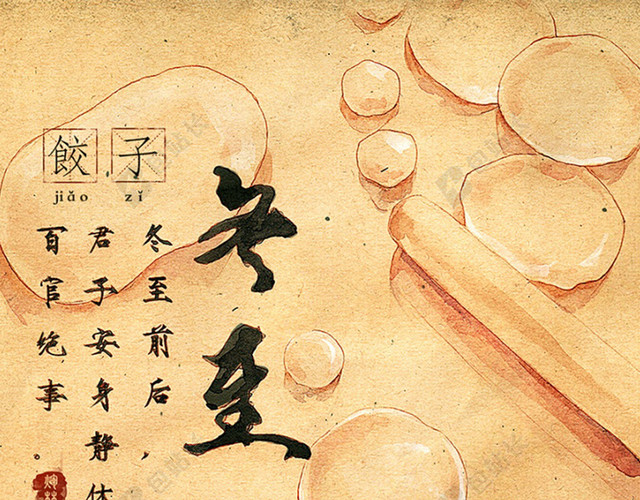 餃子
jiǎo zǐ
冬至
冬至前后，
君子安身静体
百官绝事。